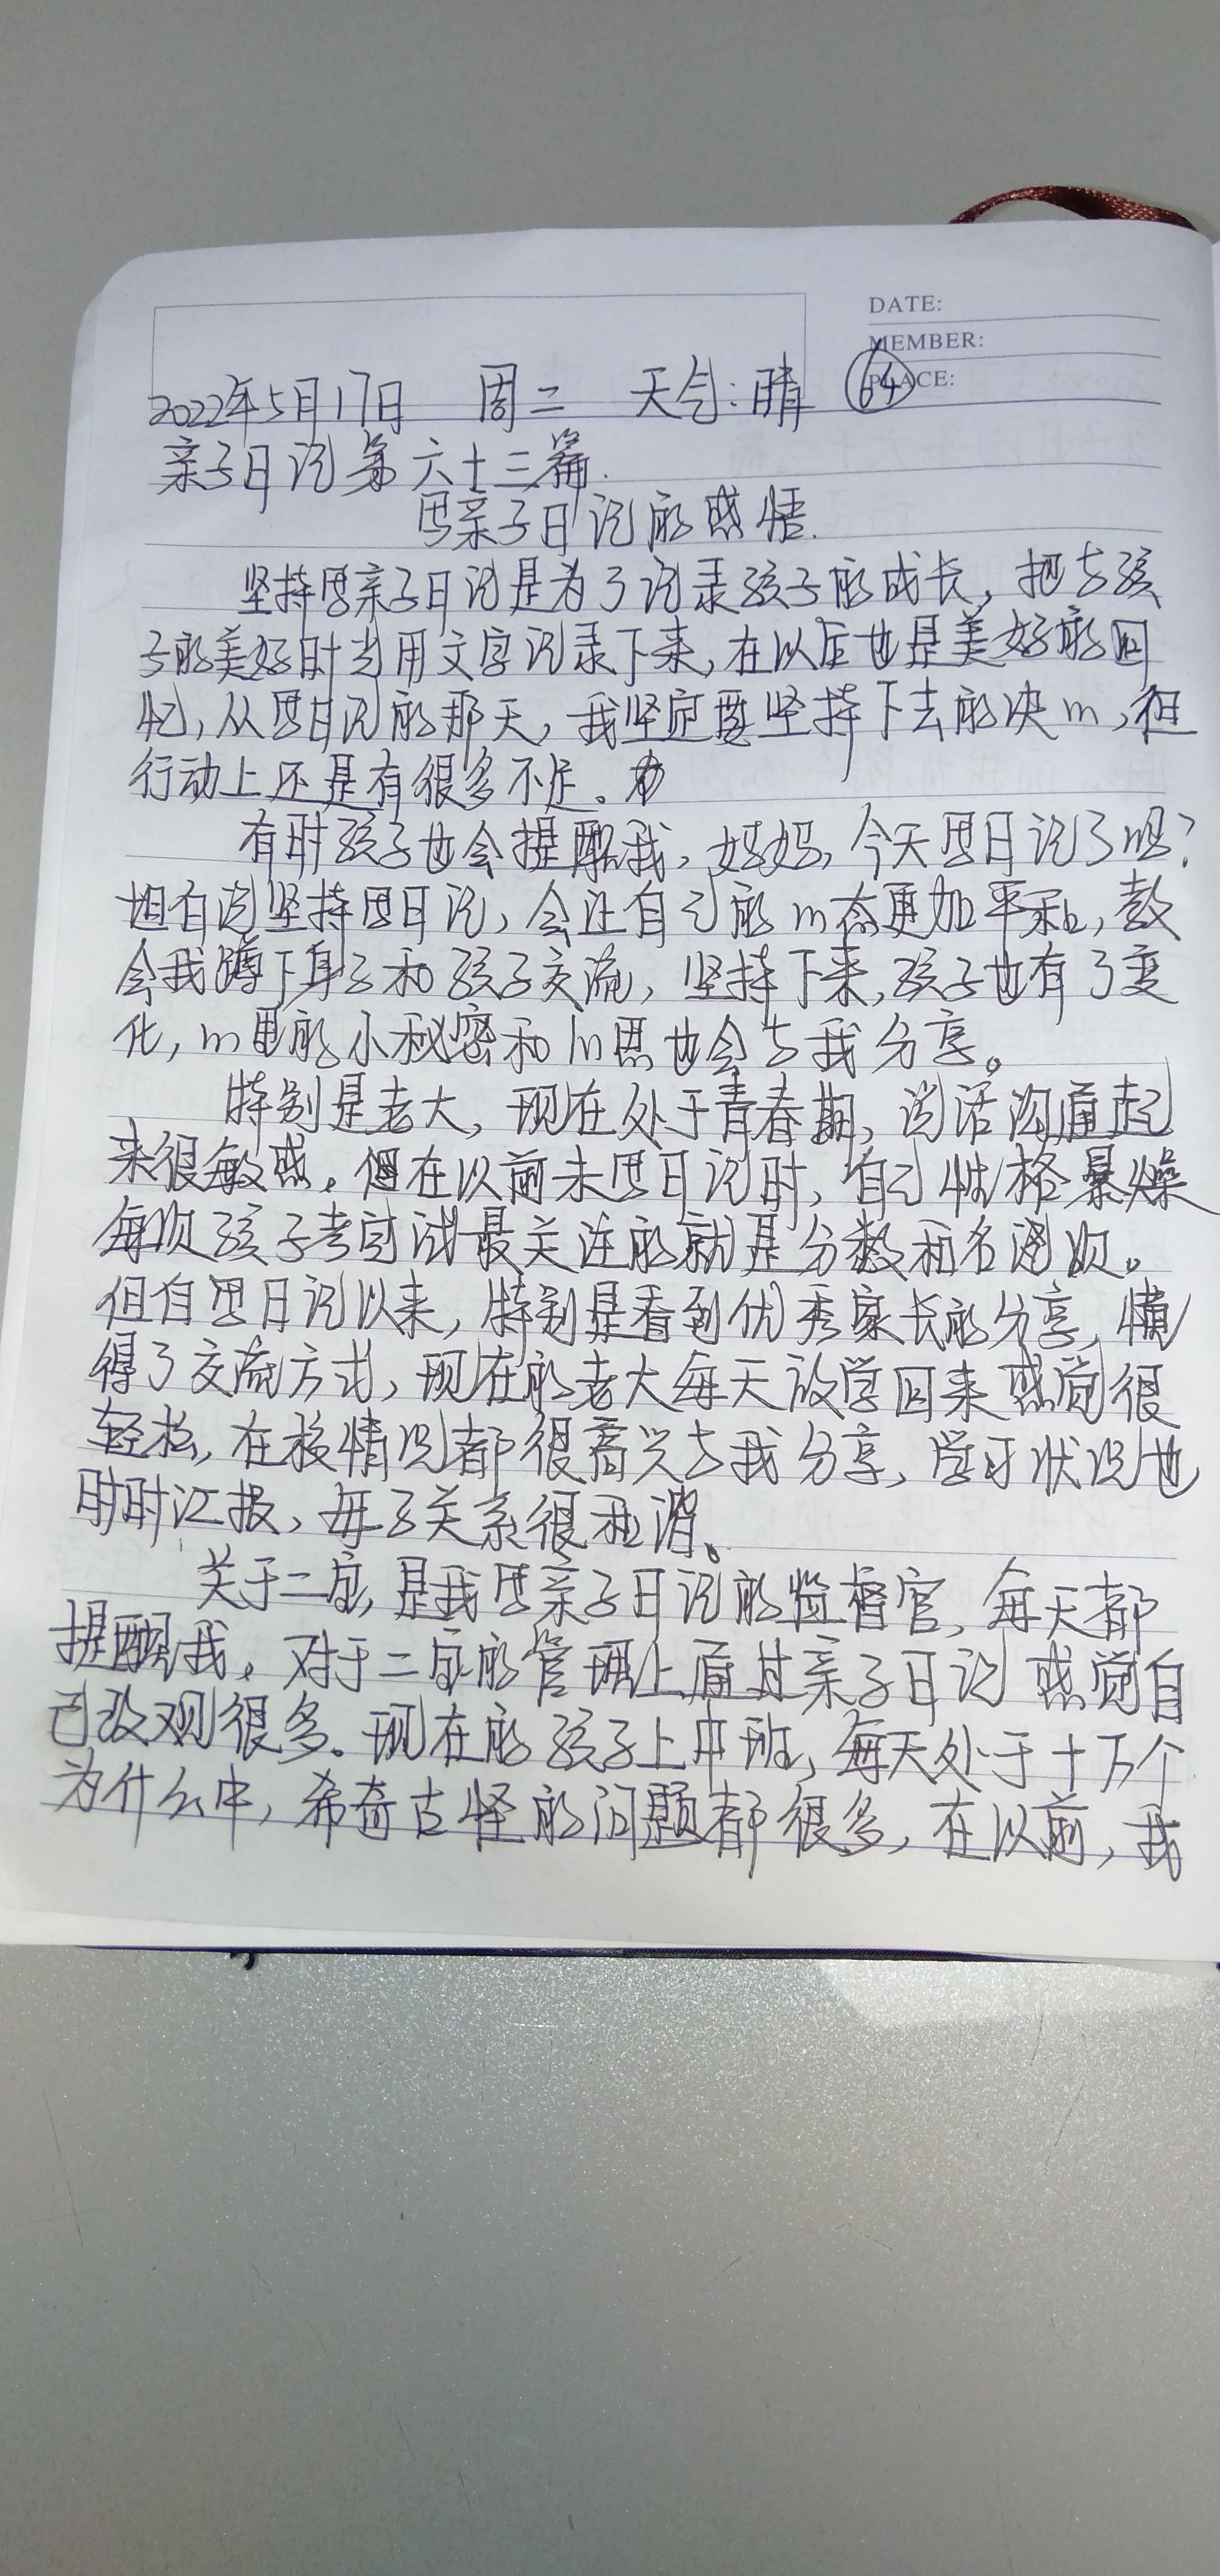 DATE:
MEMBER:
PLACE:
2022年5月17日 周二 天气:晴 64
亲子日记第六十三篇.
写亲子日记的感悟.
坚持写亲子日记是为了记录孩子的成长,把与孩
子的美好时光用文字记录下来,在以后也是美好的回
忆,从写日记的那天,我坚定要坚持下去的决心,但
行动上还是有很多不足。
有时孩子也会提醒我,妈妈,今天写日记了吗?
坦白说坚持写日记,会让自己的心态更加平和,教
会我蹲下身子和孩子交流,坚持下来,孩子也有了变
化,心里的小秘密和心思也会与我分享。
特别是老大,现在处于青春期,说话沟通起
来很敏感。但在以前未写日记时,自己性格暴燥
每次孩子考试最关注的就是分数和名次。
但自写日记以来,特别是看到优秀家长的分享,懂
得了交流方式,现在的老大每天放学回来感觉很
轻松,在校情况都很高兴与我分享,学习状况也
时时汇报,母子关系很和谐。
关于二宝,是我写亲子日记的监督官,每天都
提醒我。对于二宝的管理上通过亲子日记感觉自
己改观很多。现在的孩子上中班,每天处于十万个
为什么中,希奇古怪的问题都很多,在以前,我